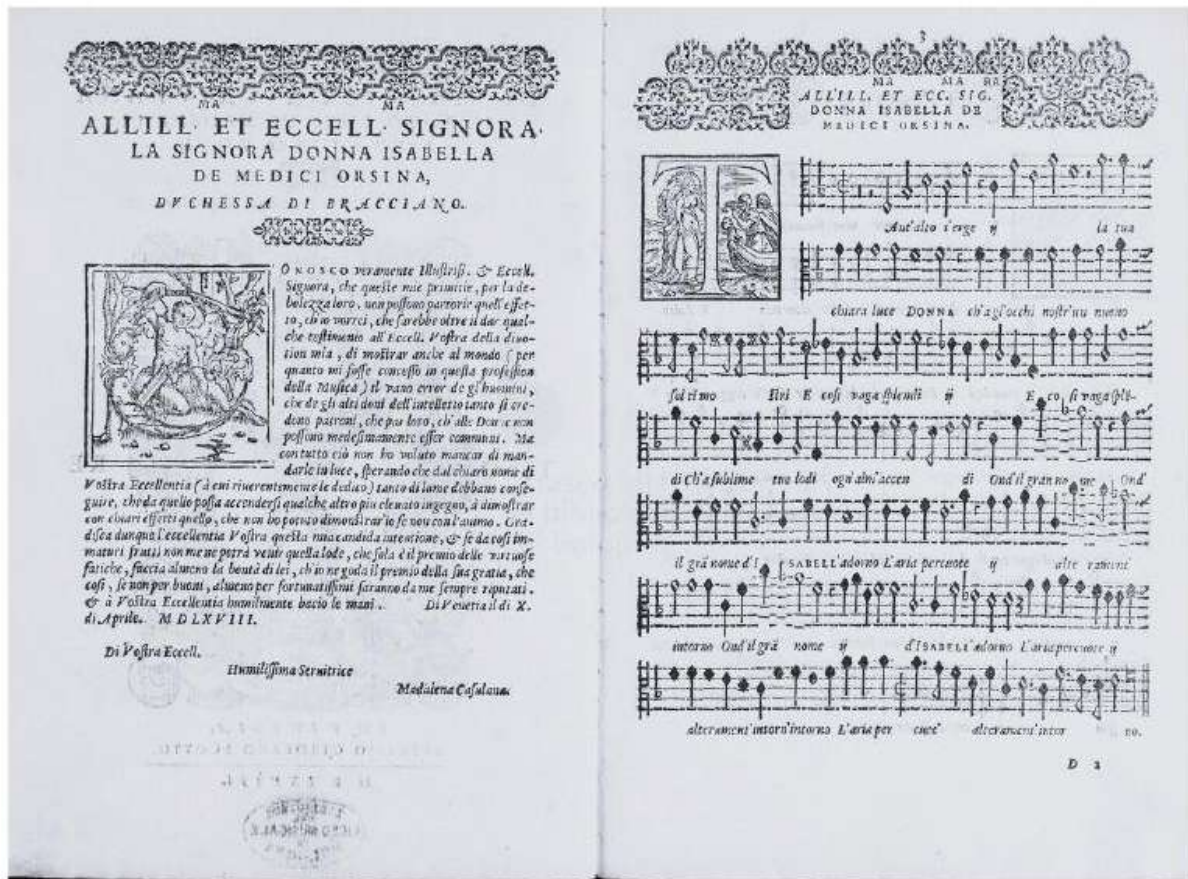 MA MA
ALL'ILL. ET ECCELL. SIGNORA.
LA SIGNORA DONNA ISABELLA
DE MEDICI ORSINA,
DVCHESSA DI BRACCIANO.
CONOSCO veramente Illustriss. & Eccell.
Signora, che queste mie primitie, per la de-
bolezza loro, non possono partorir quell'effet-
to, ch'io vorrei, che sarebbe oltre il dar qual-
che testimonio all'Eccell. Vostra della divo-
tion mia, di mostrar anche al mondo (per
quanto mi fosse concesso in questa profession
della Musica) il vano error de gl'huomini,
che de gli alti doni dell'intelletto tanto si cre-
dono patroni, che par loro, ch'alle Donne non
possono medesimamente esser communi. Ma
con tutto ciò non ho voluto mancar di man-
darle in luce, sperando che dal chiaro nome di
Vostra Eccellentia (à cui riverentemente le dedico) tanto di lume debbano conse-
guire, che da quello possa accendersi qualche altro più elevato ingegno, à dimostrar
con chiari effetti quello, che non ho potuto dimostrar io se non con l'animo. Gra-
disca dunque l'eccellentia Vostra questa mia candida intentione, & se da cosi im-
maturi frutti non me ne potrà venir quella lode, che sola è il premio delle virtuose
fatiche, faccia almeno la bontà di lei, ch'io ne goda il premio della sua gratia, che
cosi, se non per buoni, almeno per fortunatissimi saranno da me sempre reputati.
& à Vostra Eccellentia humilmente bacio le mani. Di Venetia il dì X.
di Aprile. MDLXVIII.
Di Vostra Eccell.
Humilissima Servitrice
Madalena Casulana.
3
MA MA RA
ALL'ILL. ET ECC. SIG.
DONNA ISABELLA DE
MEDICI ORSINA.
TAnt'alto s'erge ij la tua
chiara luce DONNA ch'agl'occhi nostr'un nuovo
sol E cosi vaga splendi ij E co si vaga spl-
di Ch'a sublime tuo lodi ogn'alm'accen di Ond'il gran no me Ond'
il grā nome d'ISABELL'adorno L'aria percuote ij alte rament'
intorno Ond'il grā nome ij d'ISABELL'adorno L'aria percuote ij
alterament'intorn'intorno L'aria per cuot' alterament'intor no.
D 2